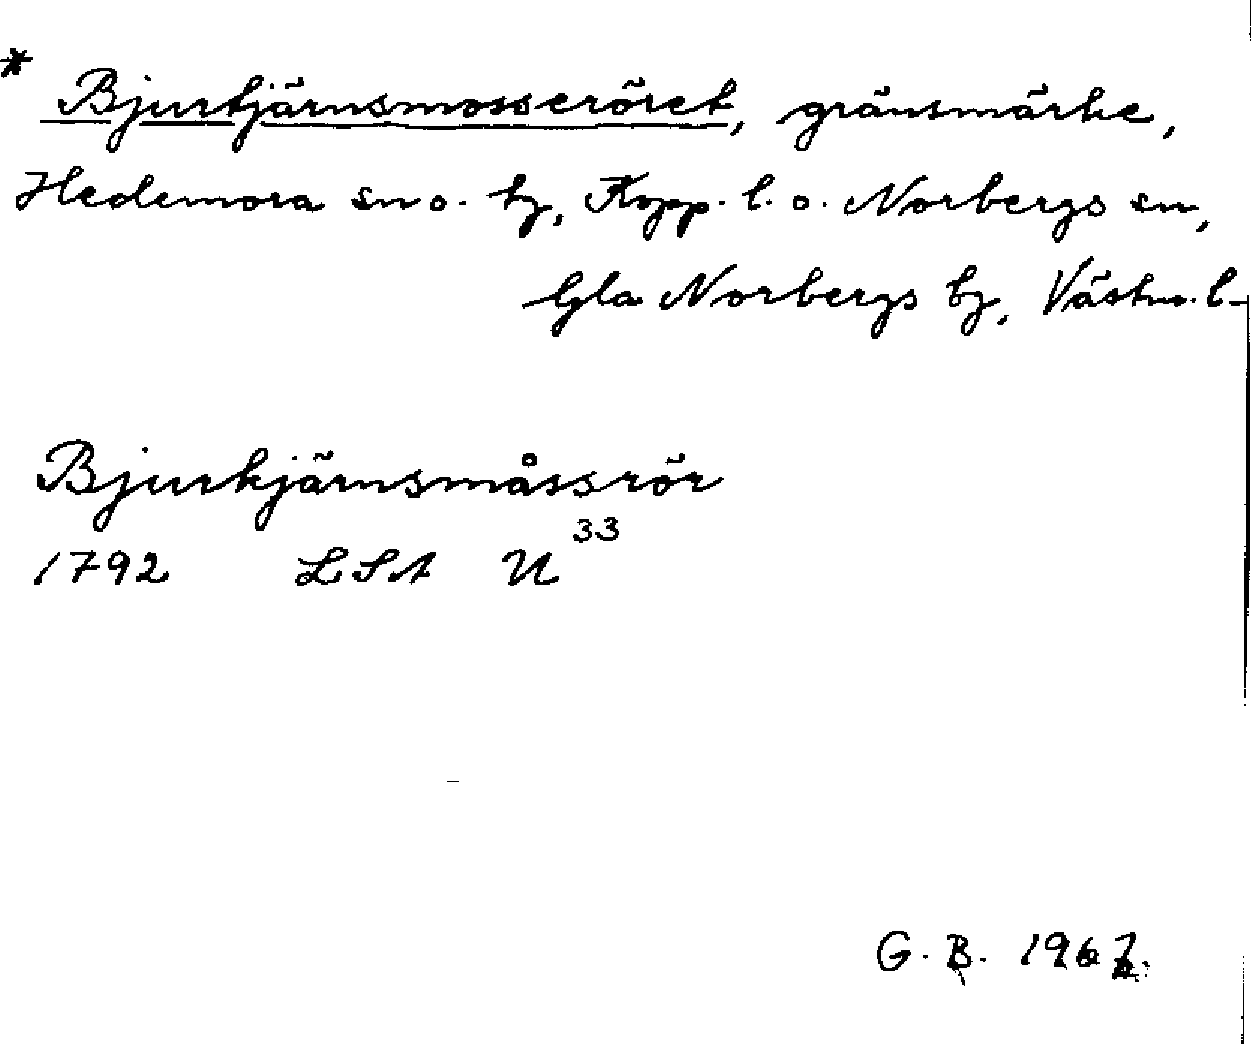 * Bjurtjärnsmosseröret, gränsmärke,
Hedemora sn o. tg, Kopp. l. o. Norbergs sn,
Gla Norbergs bg, Västm. l.
Bjurkjärnsmåssrör
1792 LSA U 33
G. B. 1967.